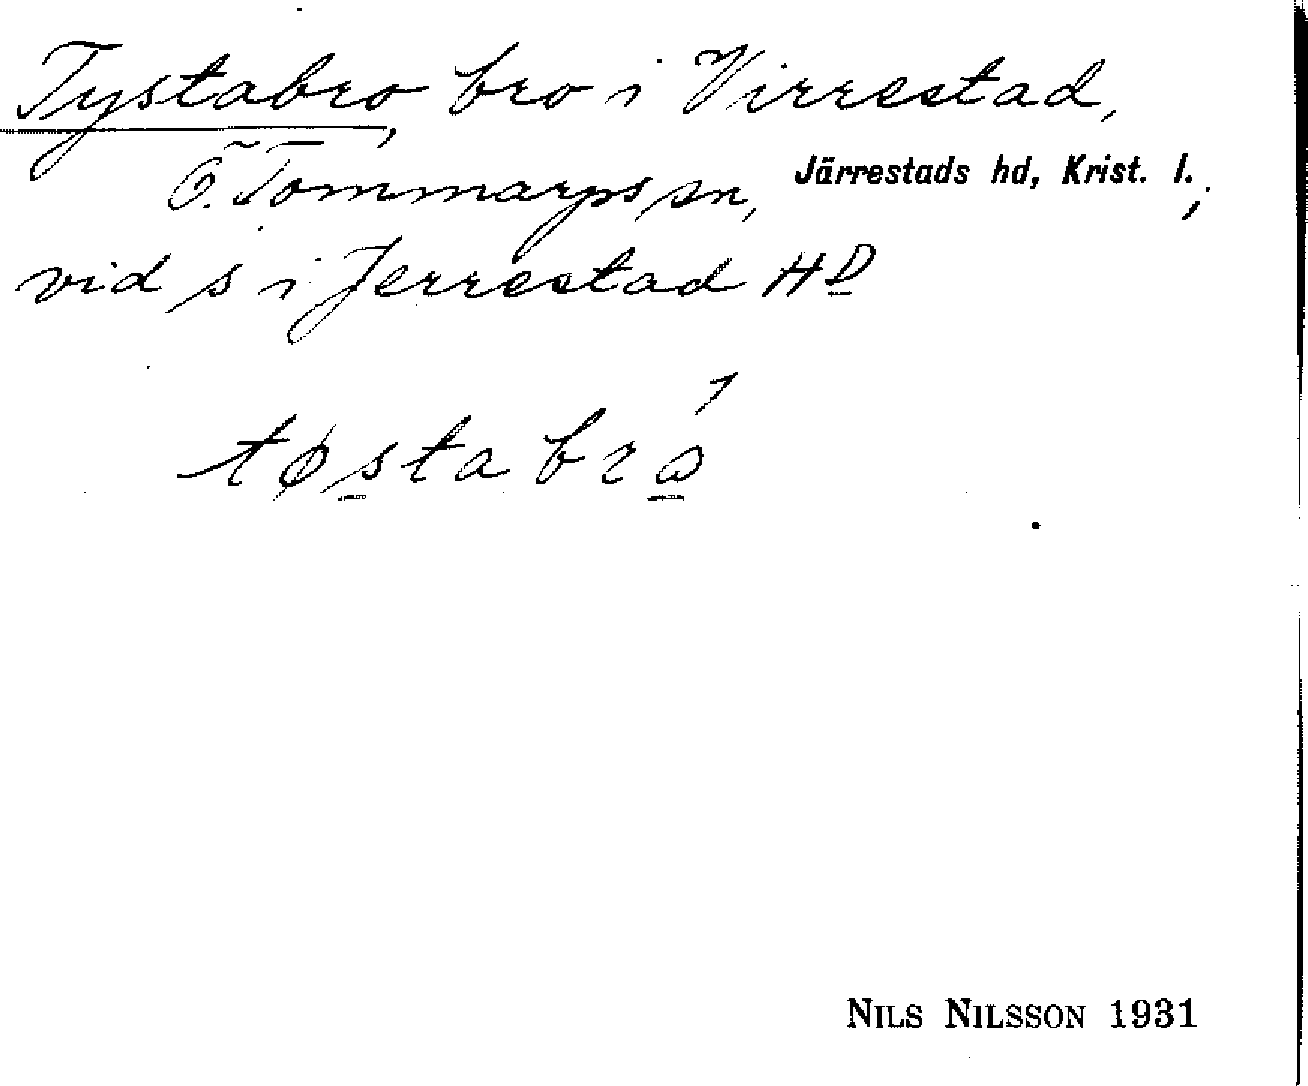 Tystabro, bro i Virrestad,
Ö. Tommarps sn, Järrestads hd, Krist. l.;
vid s i Jerrestad HD
tøstabró
NILS NILSSON 1931